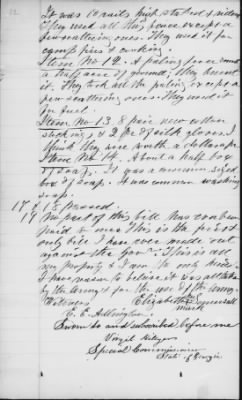 12
It was 10 rails high staked & ridered
They used all they house except a
few scattering ones. They used it for
camp fires & cooking.
Item No 12. A paling fence round
a half acre of ground; they burnt
it. They took all the paling except a
few scattering ones. They used it
for fuel.
Item No 13. 8 pair new cotton
stockings & 2 pr of silk gloves I
think they were worth a dollar apr
Item No 14. About a half box
of soap. It was a common sized
box of soap. It was common washing
soap.
17 & 18 passed.
19 No part of this bill has ever been
paid to me. This is the first &
only bill I have ever made out
against the Gov. This is all
my property &
I have reason to believe it was all taken
by the army & for the use of the army
Witness Elizabeth
mark
E. E.
Sworn to and subscribed before me
Virgil Hillyer
Special Commissioner
State of Georgia